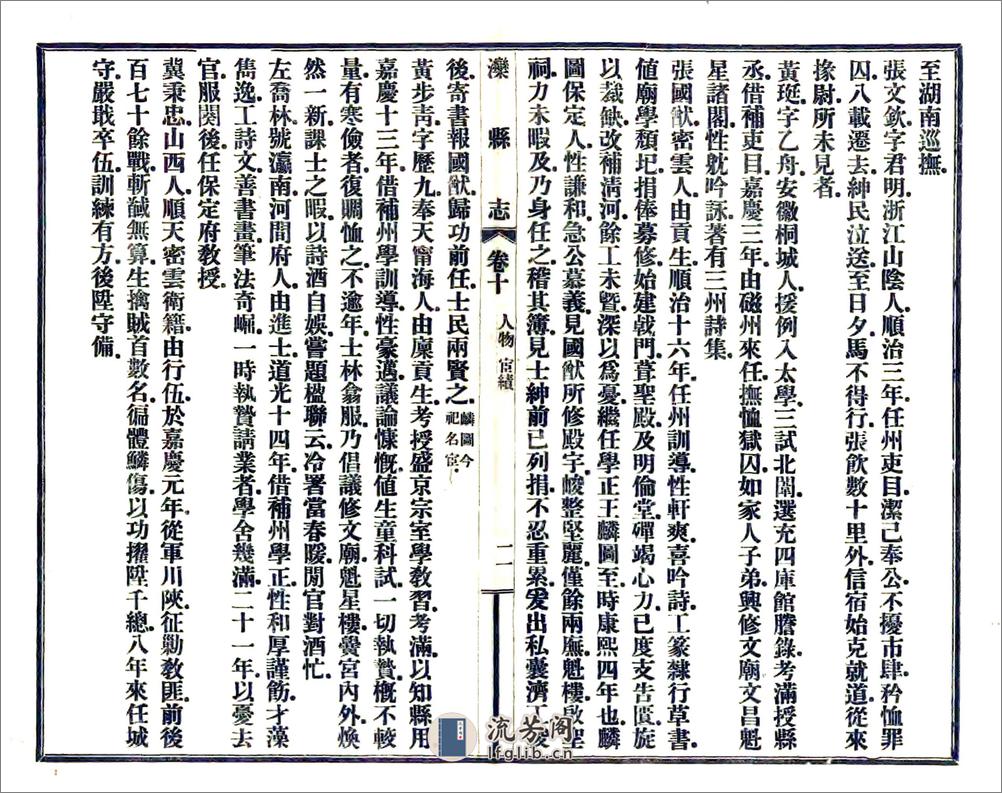 至湖南巡撫
張文欽字君明浙江山陰人順治三年任州吏目潔己奉公不擾市肆矜恤罪
囚八載遷去紳民泣送至日夕馬不得行張飲數十里外信宿始克就道從來
掾尉所未見者
黃珽字乙舟安徽桐城人援例入太學三試北闈選充四庫館謄錄考滿授縣
丞借補吏目嘉慶三年由磁州來任撫恤獄囚如家人子弟興修文廟文昌魁
星諸閣性躭吟詠著有三州詩集
張國猷密雲人由貢生順治十六年任州訓導性軒爽喜吟詩工篆隸行草書
値廟學頹圮捐俸募修始建戟門葺聖殿及明倫堂殫竭心力已度支告匱旋
以裁缺改補淸河餘工未曁深以爲憂繼任學正王麟圖至時康熙四年也麟
圖保定人性謙和急公慕義見國猷所修殿宇峻整堅麗僅餘兩廡魁樓啟聖
祠力未暇及乃身任之稽其簿見士紳前已列捐不忍重累爰出私囊濟工竣
灤縣志
卷十
人物 宦績
二一
後寄書報國猷歸功前任士民兩賢之
麟圖今
祀名宦
黃步靑字歷九奉天甯海人由廩貢生考授盛京宗室學敎習考滿以知縣用
嘉慶十三年借補州學訓導性豪邁議論慷慨値生童科試一切執贄槪不較
量有寒儉者復賙恤之不逾年士林翕服乃倡議修文廟魁星樓黌宮內外煥
然一新課士之暇以詩酒自娛嘗題楹聯云冷署當春暖閒官對酒忙
左喬林號瀛南河間府人由進士道光十四年借補州學正性和厚謹飭才藻
雋逸工詩文善書畫筆法奇崛一時執贄請業者學舍幾滿二十一年以憂去
官服闋後任保定府敎授
冀秉忠山西人順天密雲衛籍由行伍於嘉慶元年從軍川陝征勦敎匪前後
百七十餘戰斬馘無算生擒賊首數名徧體鱗傷以功擢陞千總八年來任城
守嚴戢卒伍訓練有方後陞守備
流芳閣
lfglib.cn